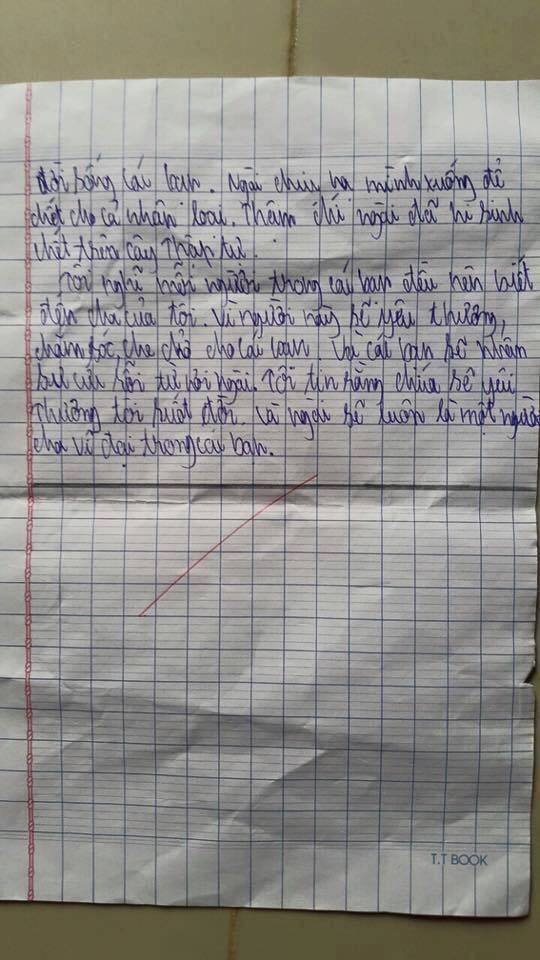 đời sống cái bạn. Ngài chiụ hạ mình xuống để
chết cho cả nhân loại. Thậm chí ngài đã hi sinh
chết trên cây Thập tự.
Tôi nghĩ mỗi người trong cái bạn đều nên biết
đến cha của tôi. Vì người này sẽ yêu thương,
chăm sóc, che chở cho cái bạn. Và các bạn sẽ nhâm
sự cứu rỗi từ nơi ngài. Tôi tin rằng chúa sẽ yêu
thương tôi suốt đời. Và ngài sẽ luôn là một người
cha vĩ đại trong cái bạn.
T.T BOOK